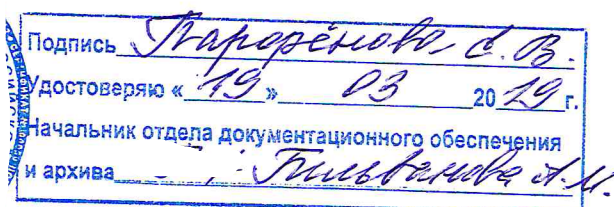 Подпись Парфёнова С. В.
Удостоверяю « 19 » 03 20 19 г.
Начальник отдела документационного обеспечения
и архива Гильванова А.М.